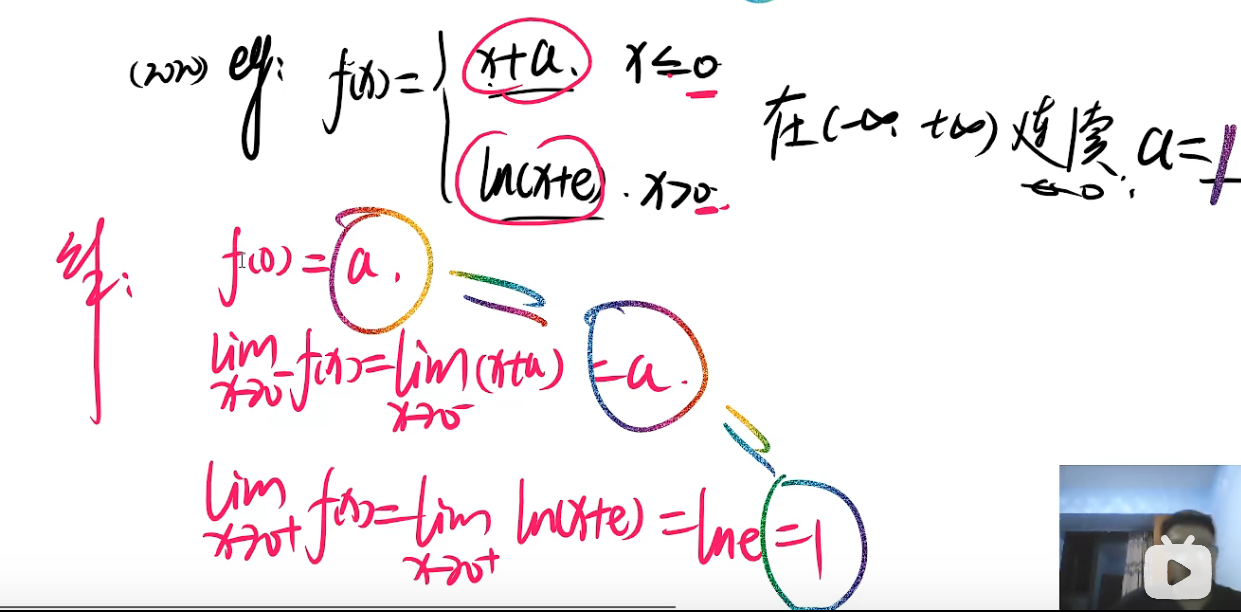 (2020) eg: f(x)= { x+a, x≤0
ln(x+e), x>0.
在(-∞, +∞)连续, a=1
解: f(0)=a.
=
lim x→0⁻ f(x)=lim x→0⁻ (x+a)=a.
=
lim x→0⁺ f(x)=lim x→0⁺ ln(x+e)=lne=1